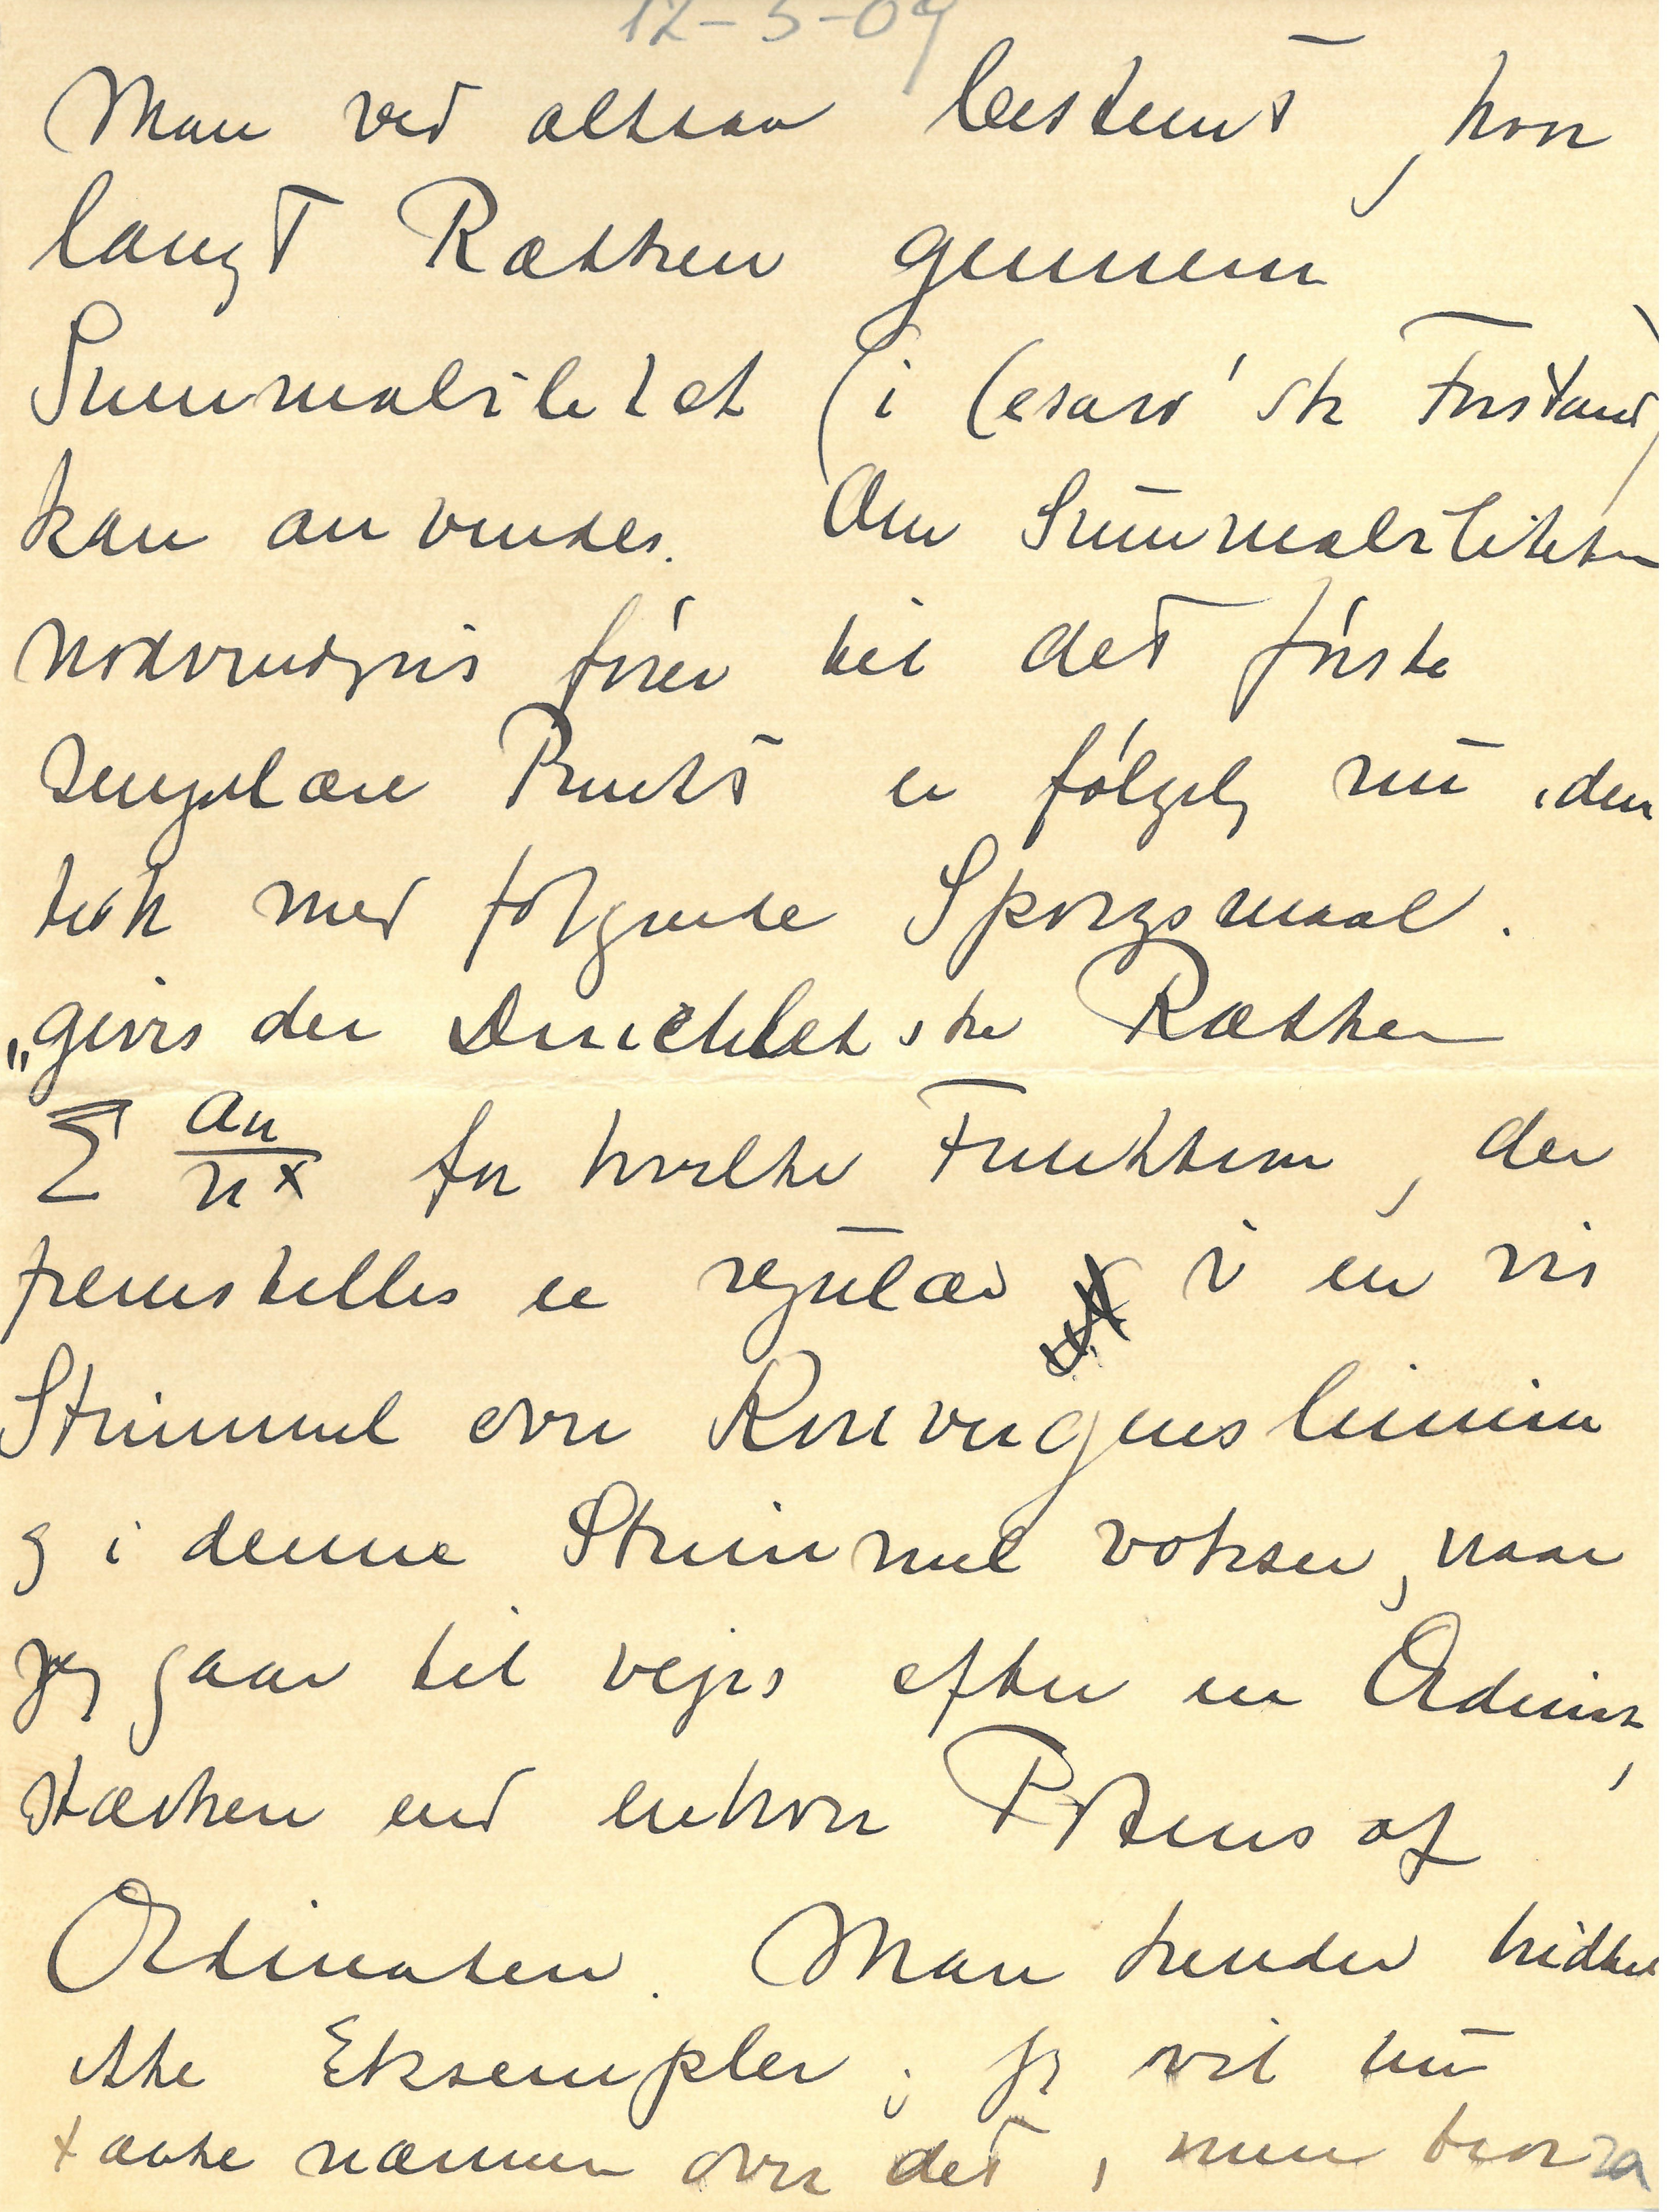 12-5-09
Man ved altsaa bestemt, hvor
langt Rækken gennem
Summabilitet (i Cesaro'sk Forstand)
kan anvendes. Om Summabiliteten
nødvendigvis fører til det første
singulære Punkt er følgelig nu iden
tisk med følgende Spørgsmaal.
„gives der Dirichletske Rækker
Σ an/n^x for hvilke Funktionen, der
fremstilles er regulær i en vis
Strimmel over Konvergenslinien
og i denne Strimmel vokser, naar
jeg gaar til vejrs efter en Ordinat,
stærkere end enhver Potens af
Ordinaten. Man kender hidtil
ikke Eksempler; jeg vil nu
tænke nærmere over det, men tror